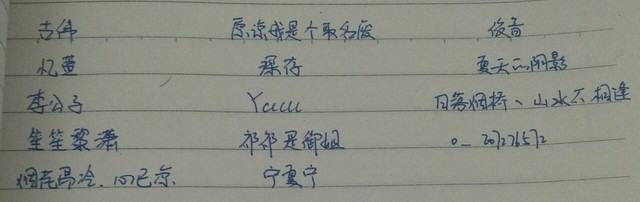 古伟 原谅我是个取名废 俊音
忆萱 琛存 夏天的阴影
李公子 Yuuu 日落烟桥、山水不相逢
笙笙黎潇 祁祁是御姐 0_20726572
烟花易冷、心已凉 宁夏宁